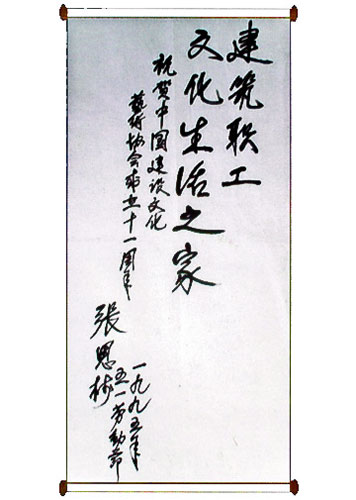 建筑职工
文化生活之家
祝贺中国建设文化
艺术协会成立十一周年
張恩树
一九九五年
五一劳动节